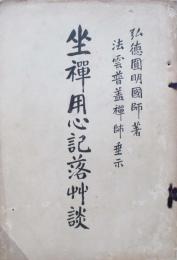 弘德圓明國師著
法雲普蓋禪師垂示
坐禪用心記落艸談